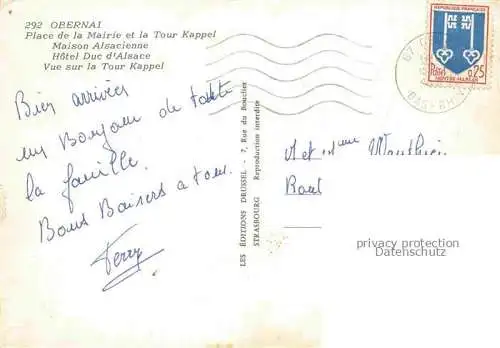 292 OBERNAI
Place de la Mairie et la Tour Kappel
Maison Alsacienne
Hôtel Duc d'Alsace
Vue sur la Tour Kappel
Bien arrivés
un Bonjour de toute
la famille.
Bons Baisers a tous.
Ferry
LES ÉDITIONS DRUSSEL - 7, Rue du Bouclier
STRASBOURG Reproduction interdite
RÉPUBLIQUE FRANÇAISE
Postes 0,25
MONT-DE-MARSAN
67
BAS-RHIN
M et Mme
privacy protection
Datenschutz